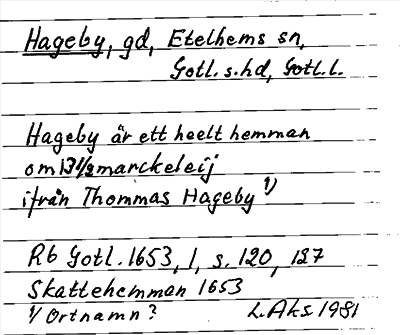 Hageby, gd, Etelhems sn,
Gotl. s. hd, Gotl. l.
Hageby är ett heelt hemman
om 13 1/2 marckeleij
ifrån Thommas Hageby 1)
Rb Gotl. 1653, 1, s. 120, 127
Skattehemman 1653
1) Ortnamn? L. Aks. 1981